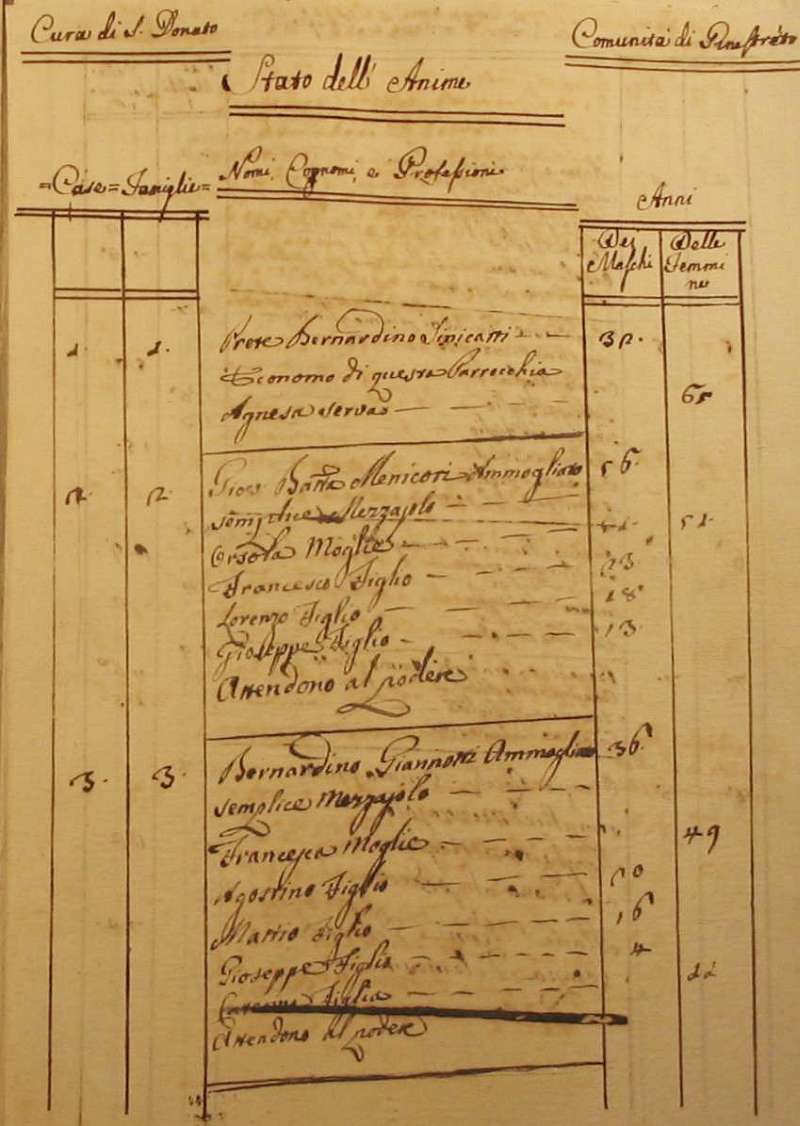 Cura di S. Donato
Comunità di
Stato dell' Anime
=Case=Famiglie= Nomi, Cognomi, e Professioni
Anni
Dei Maschi
Delle Femmine
1. 1. Prete Bernardino
Economo di questa Parrocchia
Agnesa serva
2. 2. Gio: Batta Menicori Ammogliato 56
semplice Mezzajolo
Orsola Moglie 51
Francesco Figlio 23
Lorenzo Figlio 18
Giuseppe Figlio 13
Attendono al podere
3. 3. Bernardino Giannotti Ammogliato 36
semplice Mezzajolo
Francesca Moglie 49
Agostino Figlio
Matteo Figlio 16
Gioseppe Figlio 4
Figlia
Attendono al podere